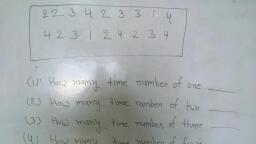 2 2 3 4 2 3 3 1 4
4 2 3 1 2 4 2 3 4
(1) How many time number of one ___
(2) How many time number of two ___
(3) How many time number of three ___
(4) How many time number of four